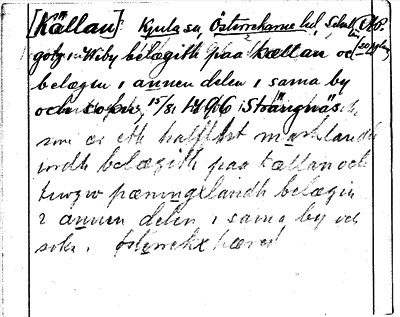 [Källan]: Kjula sn, Österrekarne hd,
gotz i Wiby belægith paa Kællan oc
belægin i annen delen i sama by
och sokn, 15/8 1496 Strängnäs
som er eth halfft markland
iordh belægith paa Kællan och
twgw pæninglandh belægin
i annen delen i sama by och
sokn. Østerrekx hæret